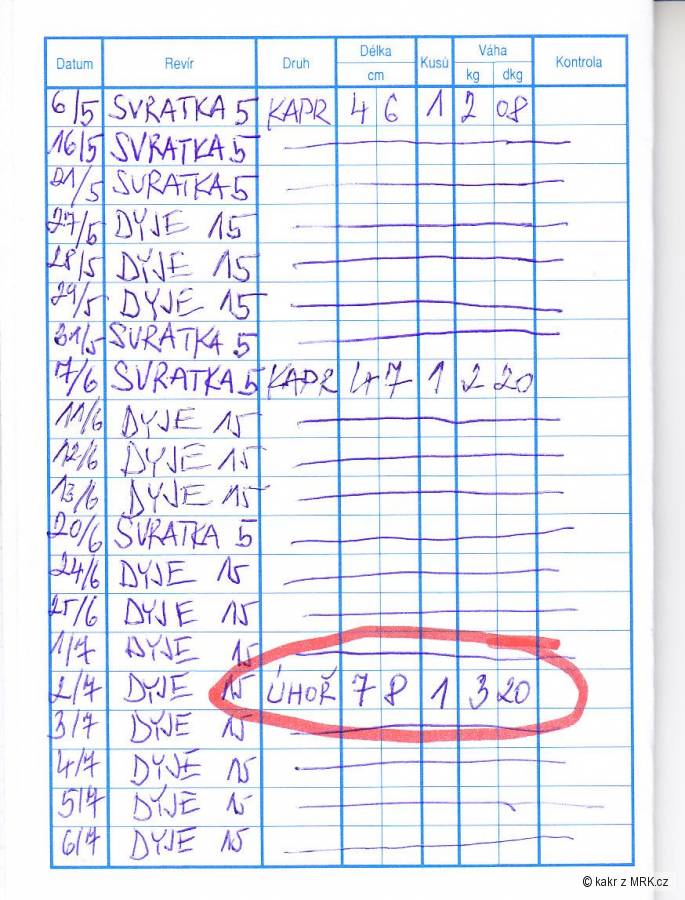 Datum Revír Druh Délka cm Kusů Váha kg dkg Kontrola
6/5 SVRATKA 5 KAPR 4 6 1 2 08
16/5 SVRATKA 5
21/5 SVRATKA 5
27/5 DYJE 15
28/5 DYJE 15
29/5 DYJE 15
31/5 SVRATKA 5
7/6 SVRATKA 5 KAPR 4 7 1 2 20
11/6 DYJE 15
12/6 DYJE 15
13/6 DYJE 15
20/6 SVRATKA 5
24/6 DYJE 15
25/6 DYJE 15
1/7 DYJE 15
2/7 DYJE 15 ÚHOŘ 7 8 1 3 20
3/7 DYJE 15
4/7 DYJE 15
5/7 DYJE 15
6/7 DYJE 15
© kakr z MRK.cz